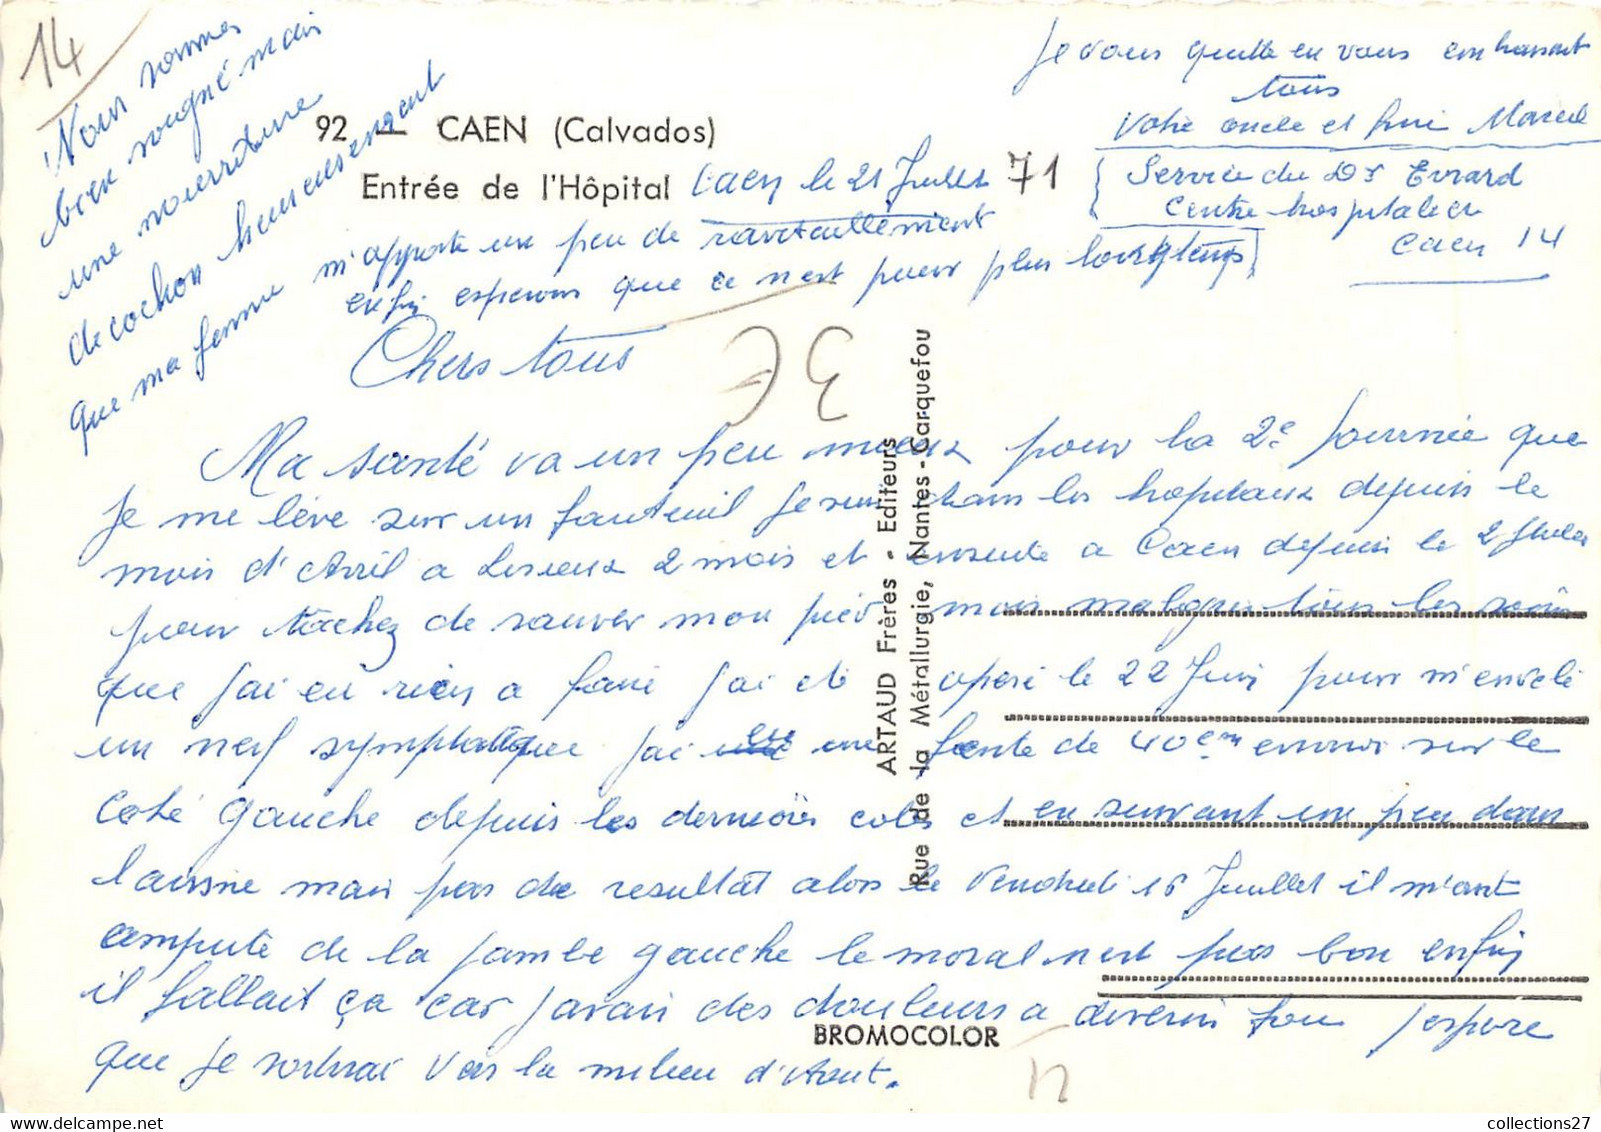 14
92 — CAEN (Calvados)
Entrée de l'Hôpital
Caen le 21 Juillet 71
Chers tous
Ma santé va un peu mieux pour la 2e Journée que
Je me lève sur un fauteuil Je suis dans les hopitaux depuis le
mois d'Avril a Lisieux 2 mois et ensuite a Caen depuis le 2 Juillet
pour tachez de sauver mon pied mais malgré tous les soins
que J'ai eu rien a faire J'ai été opéré le 22 Juin pour m'enlevé
un nerf symphatique J'ai eue une fente de 40cm environ sur le
coté gauche depuis les dernières cotes et en suivant un peu dans
l'aisne mais pas de resultat alors le Vendredi 16 Juillet il m'ont
amputé de la Jambe gauche le moral n'est pas bon enfin
il fallait ça car J'avais des douleurs a devenir fou J'espère
que Je sortirai vers le milieu d'Aout.
Nous sommes
bien soigné mais
une nourriture
de cochon heureusement
que ma femme m'apporte un peu de ravitaillement
enfin espérons que ce n'est pour plus longtemps
Je vous quitte en vous embrassant
tous
Votre oncle et Marcel
Service du Dr Evrard
Centre hospitalier
Caen 14
ARTAUD Frères • Editeurs
Rue de la Métallurgie, Nantes-Carquefou
BROMOCOLOR
collections27